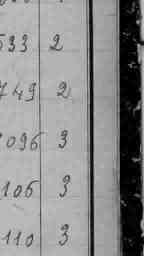 533 2
749 2
096 3
106 3
110 3